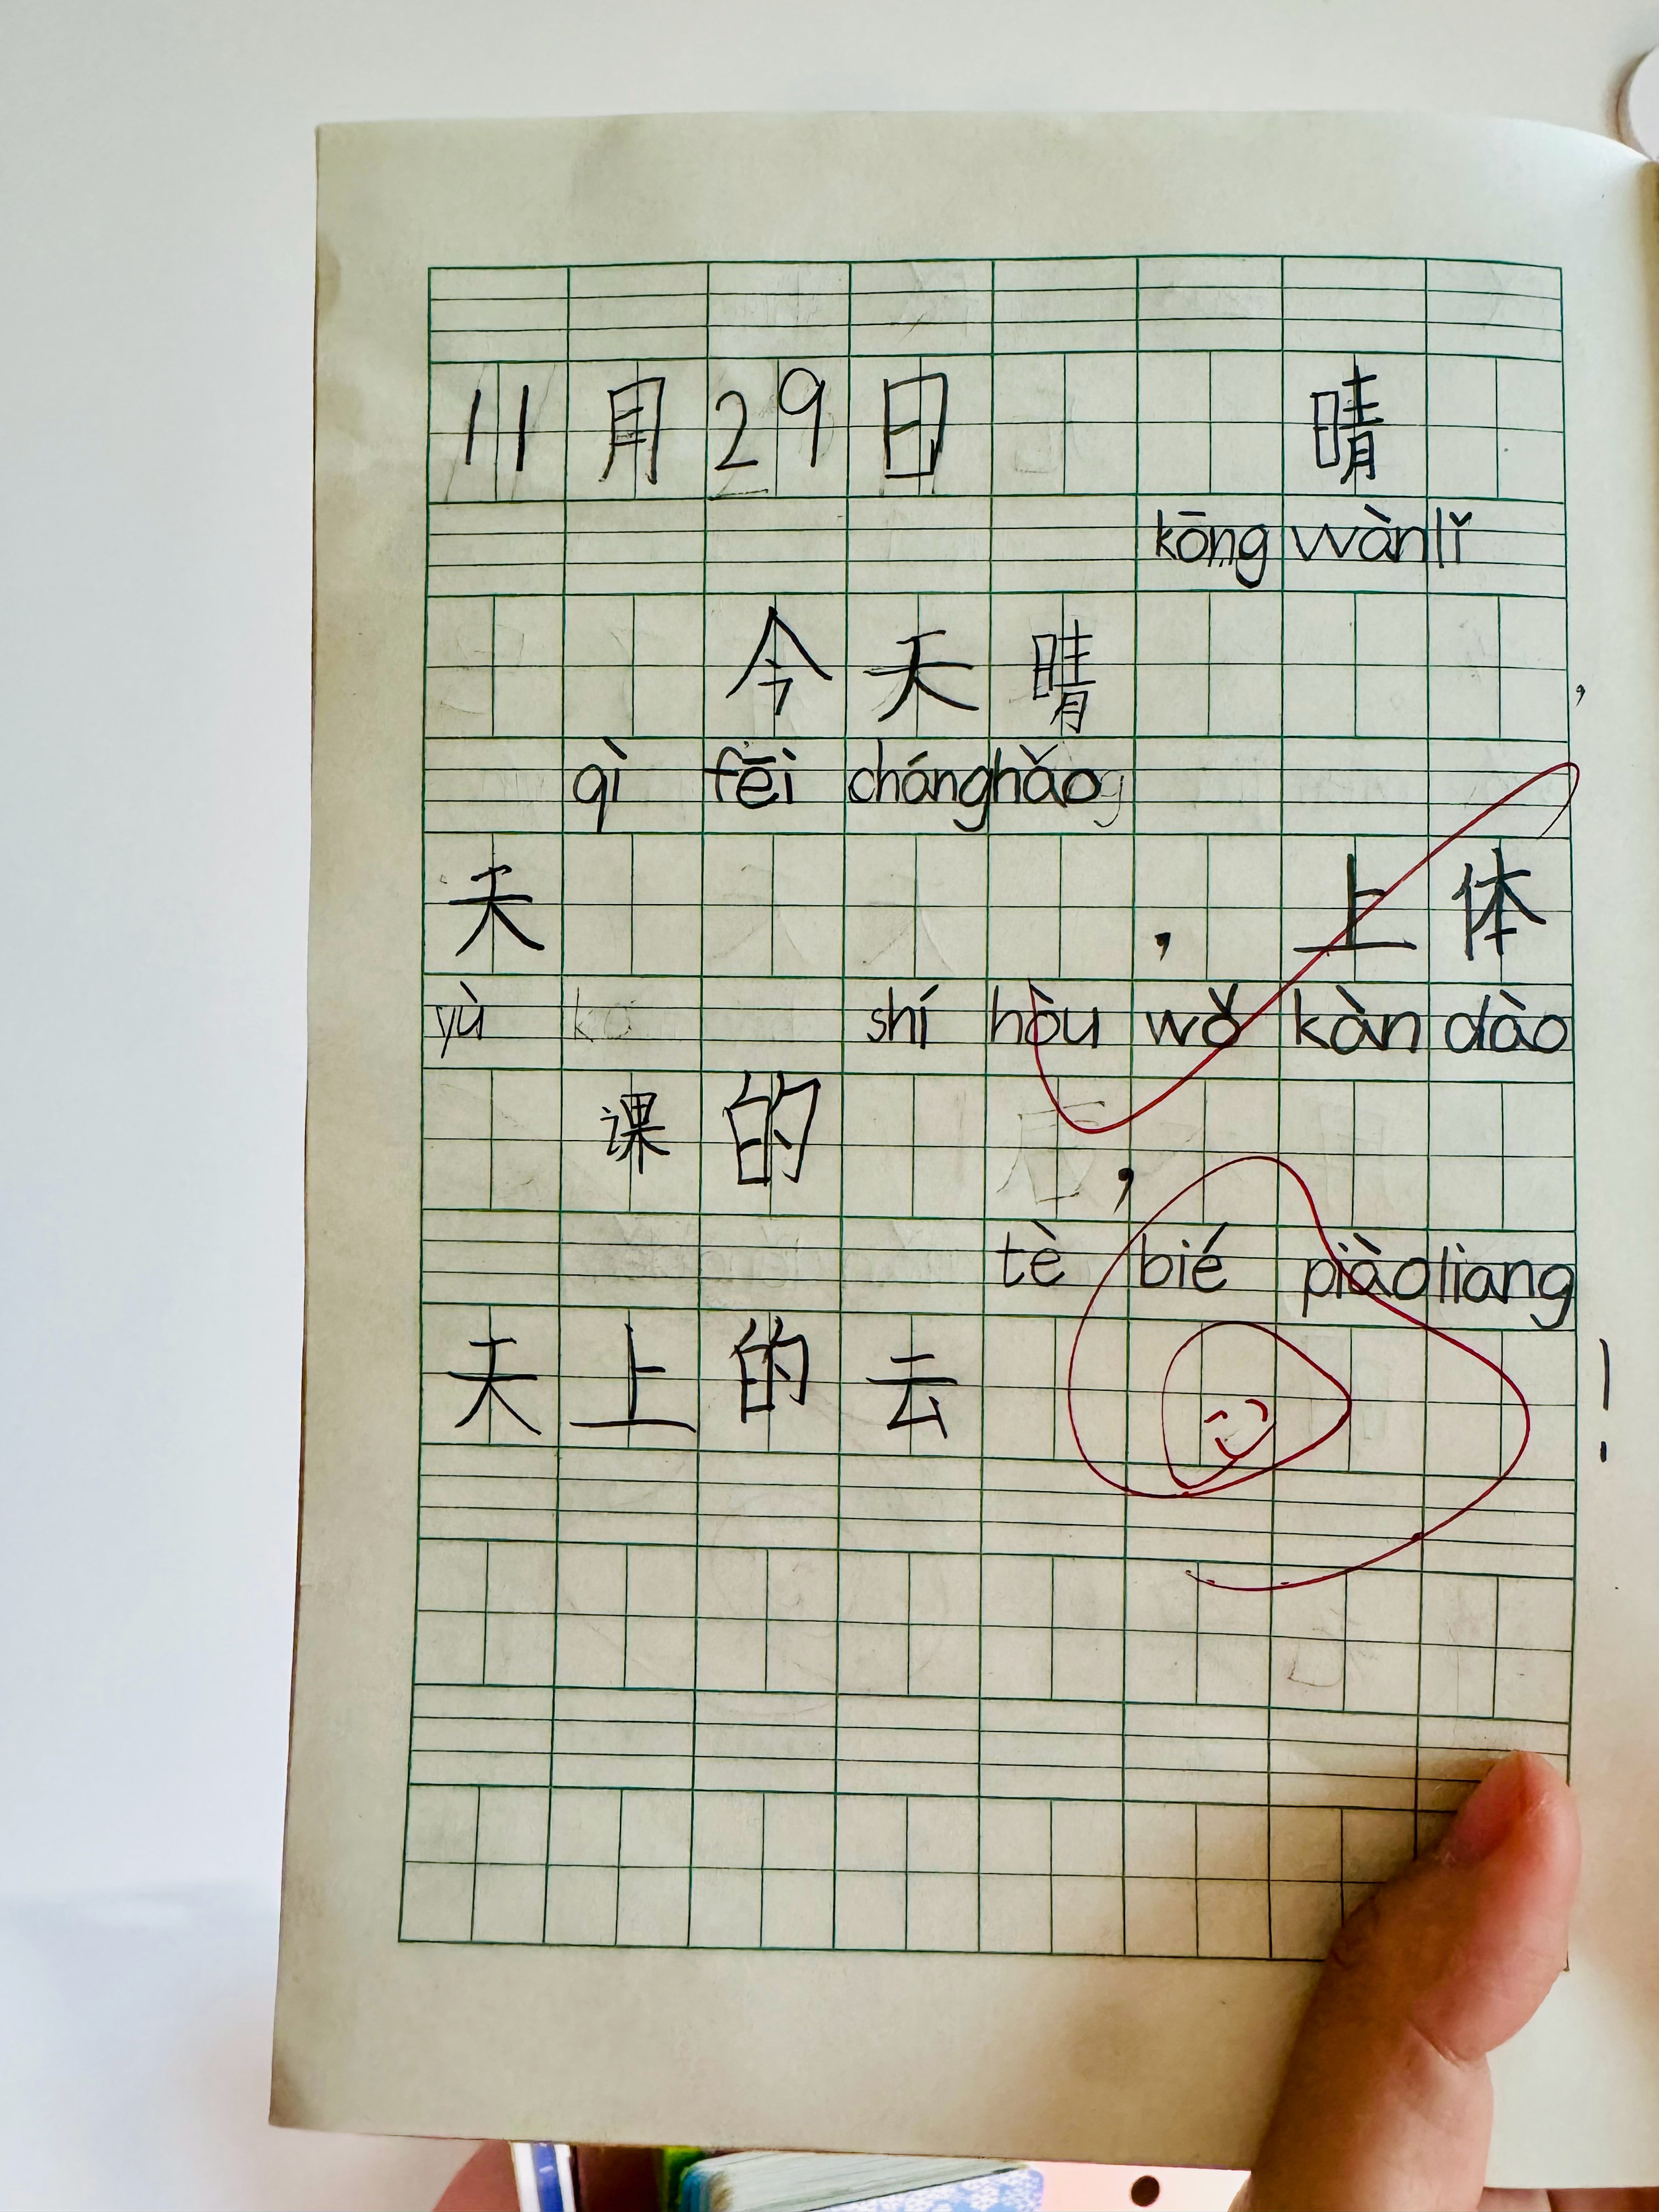 11月29日 晴
kōng wàn lǐ
今天晴 ,
qì fēi cháng hǎo
天 , 上体
yù shí hòu wǒ kàn dào
课的 ,
tè bié piàoliang
天上的云 !